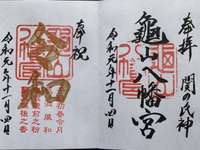 奉拝
関の氏神
龜山八幡宮
令和元年十一月四日
奉祝
令和
初春令月
令和元年十一月四日